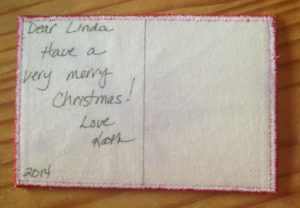 Dear Linda
Have a
very merry
Christmas!
Love
2014